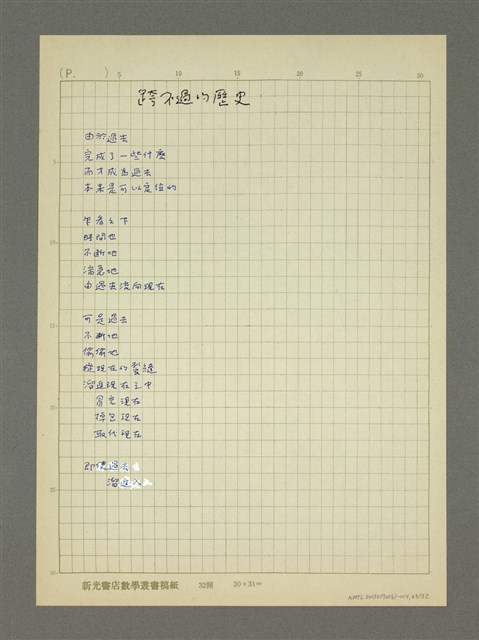 (P.      )
5 10 15 20 25 30
跨不過的歷史
由於過去
完成了一些什麼
而才成為過去
本來是可以定位的
5
乍看之下
時間也
10
不斷地
湍急地
由過去流向現在
可是過去
15
不斷地
偷偷地
從現在的裂縫
溜進現在之中
冒充現在
20
掉包現在
取代現在
即使過去
溜進入
25
30
新光書店數學叢書稿紙 32開 20×31=